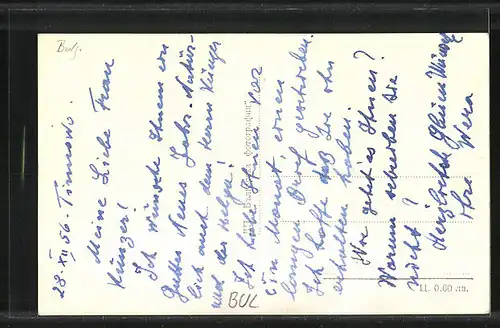 Bulg.
28.XII.56. Tirnowo.
Meine Liebe Frau
Künzer!
Ich wünsche Ihnen ein
Gutes Neues Jahr. Natür-
lich auch dem Herrn Künzer
und der Helga!
Ich habe Ihnen vor
ein Monat, einen
langen Brief geschrieben.
Ich hoffe daß Sie ihn
erhalten haben.
Wie geht es Ihnen?
Warum schreiben Sie
nicht?
Herzlichst
Ihre Wera
BUL
фотография
Ц. 0.60 лв.